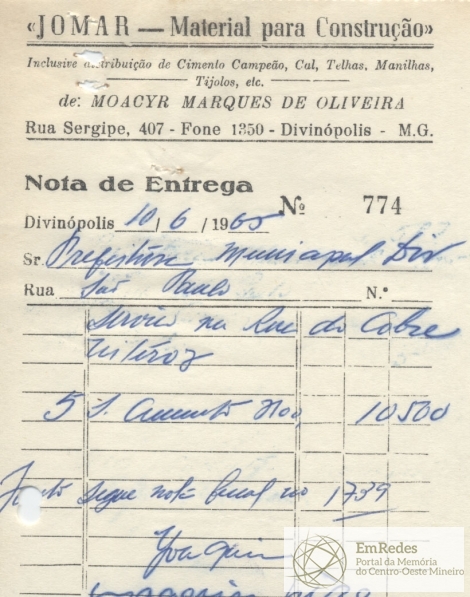 «JOMAR — Material para Construção»
Inclusive distribuição de Cimento Campeão, Cal, Telhas, Manilhas,
Tijolos, etc.
de: MOACYR MARQUES DE OLIVEIRA
Rua Sergipe, 407 - Fone 1350 - Divinópolis - M.G.
Nota de Entrega
Nº 774
Divinópolis 10/6/1965
Sr. Prefeitura Municipal Div
Rua São Paulo N.º
Serviço na Rua do Cobre
Niteroz
5 S. 2100, 10500
Junto segue nota fiscal no 1739
Joaquin
EmRedes
Portal da Memória
do Centro-Oeste Mineiro